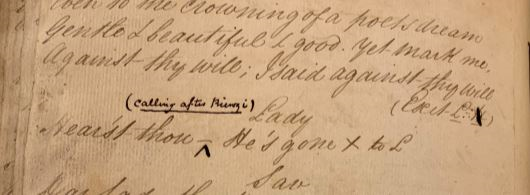 to the crowning of a poets dream
Gentle & beautiful & good. Yet mark me,
Against thy will; I said against thy will
(calling after Rienzi) (Exit L.H)
Lady
Hear'st thou – He's gone X to L
Sav